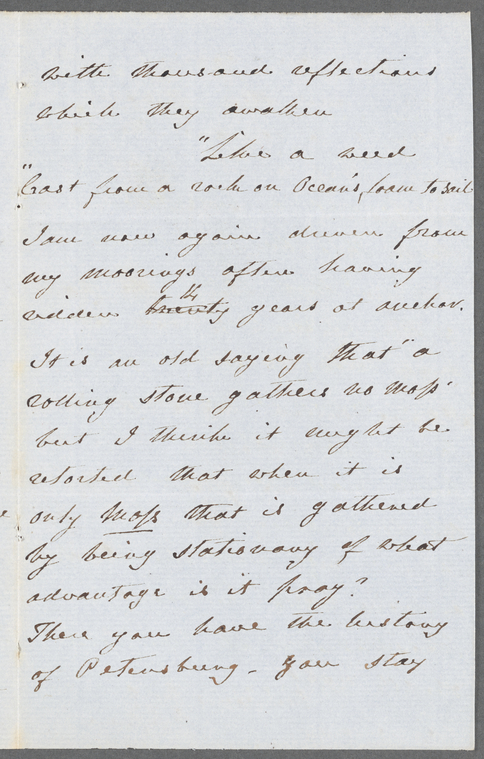 with thousand reflections
which they awaken
"Like a weed
"Cast from a rock on Ocean's foam to sail
I am now again driven from
my moorings after having
ridden twenty years at anchor.
It is an old saying that "a
rolling stone gathers no moss"
but I think it might be
retorted that when it is
only Moss that is gathered
by being stationary of what
advantage is it pray?
There you have the history
of Petersburg - you stay